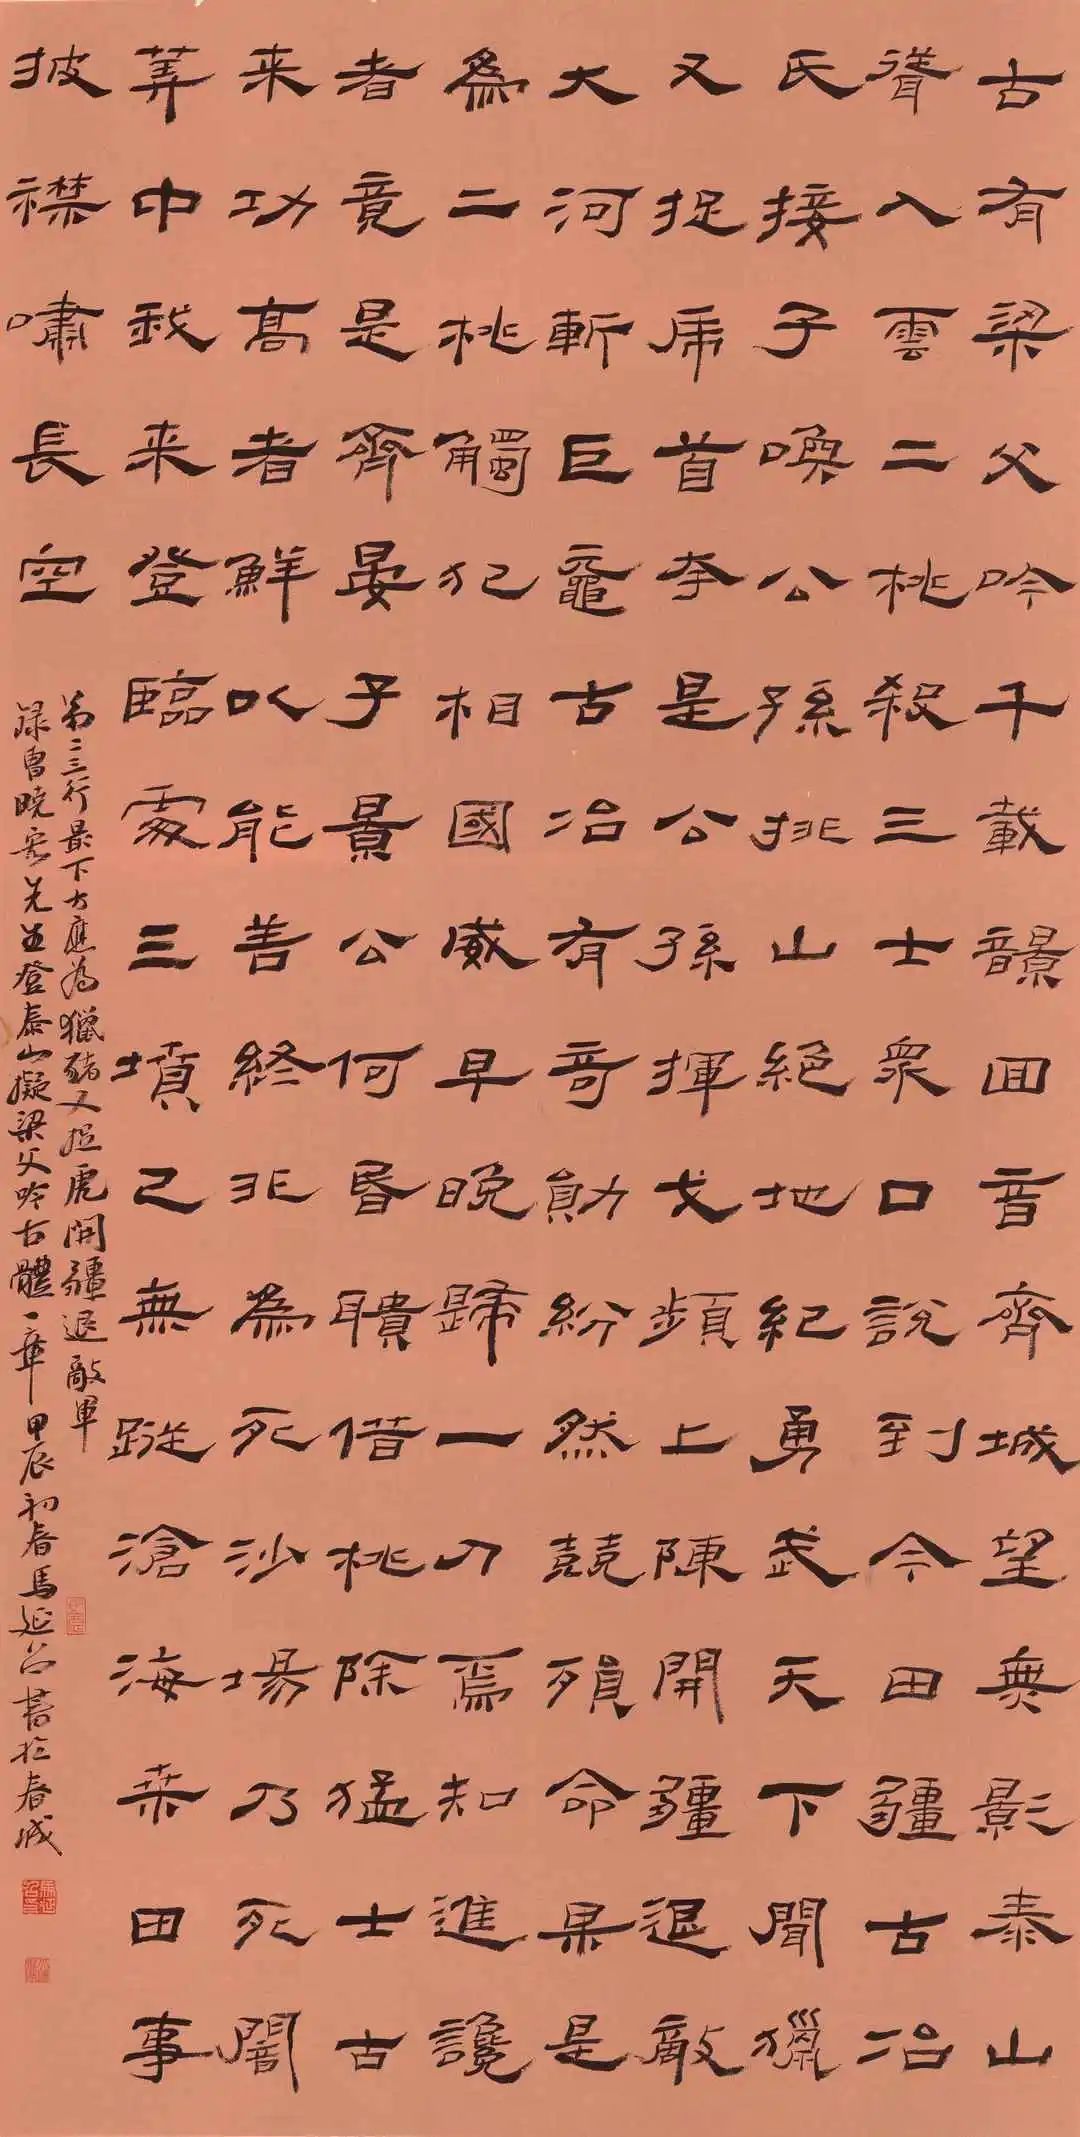 古有梁父吟千載韻囬音齊城望無影泰山
聳入雲二桃殺三士眾口說到今田疆古冶
氏接子喚公孫排山絕地紀勇武天下聞獵
又捉虎首是公孫揮戈頻上陳開疆退敵
大河斬巨黿古冶有奇勛紛然競殞命果是
為二桃觸犯相國威早晚歸一刀焉知進讒
者竟是齊晏子景公何昏聵借桃除猛士古
来功高者鮮以能善終非為死沙場乃死闇
莽中我来登臨處三墳已無蹤滄海桒田事
披襟嘯長空
第二三行最下方應為獵豬又捉虎開疆退敵軍
錄曹曉宏先生登泰山擬梁父吟古體一章甲辰初春馬延書於春城